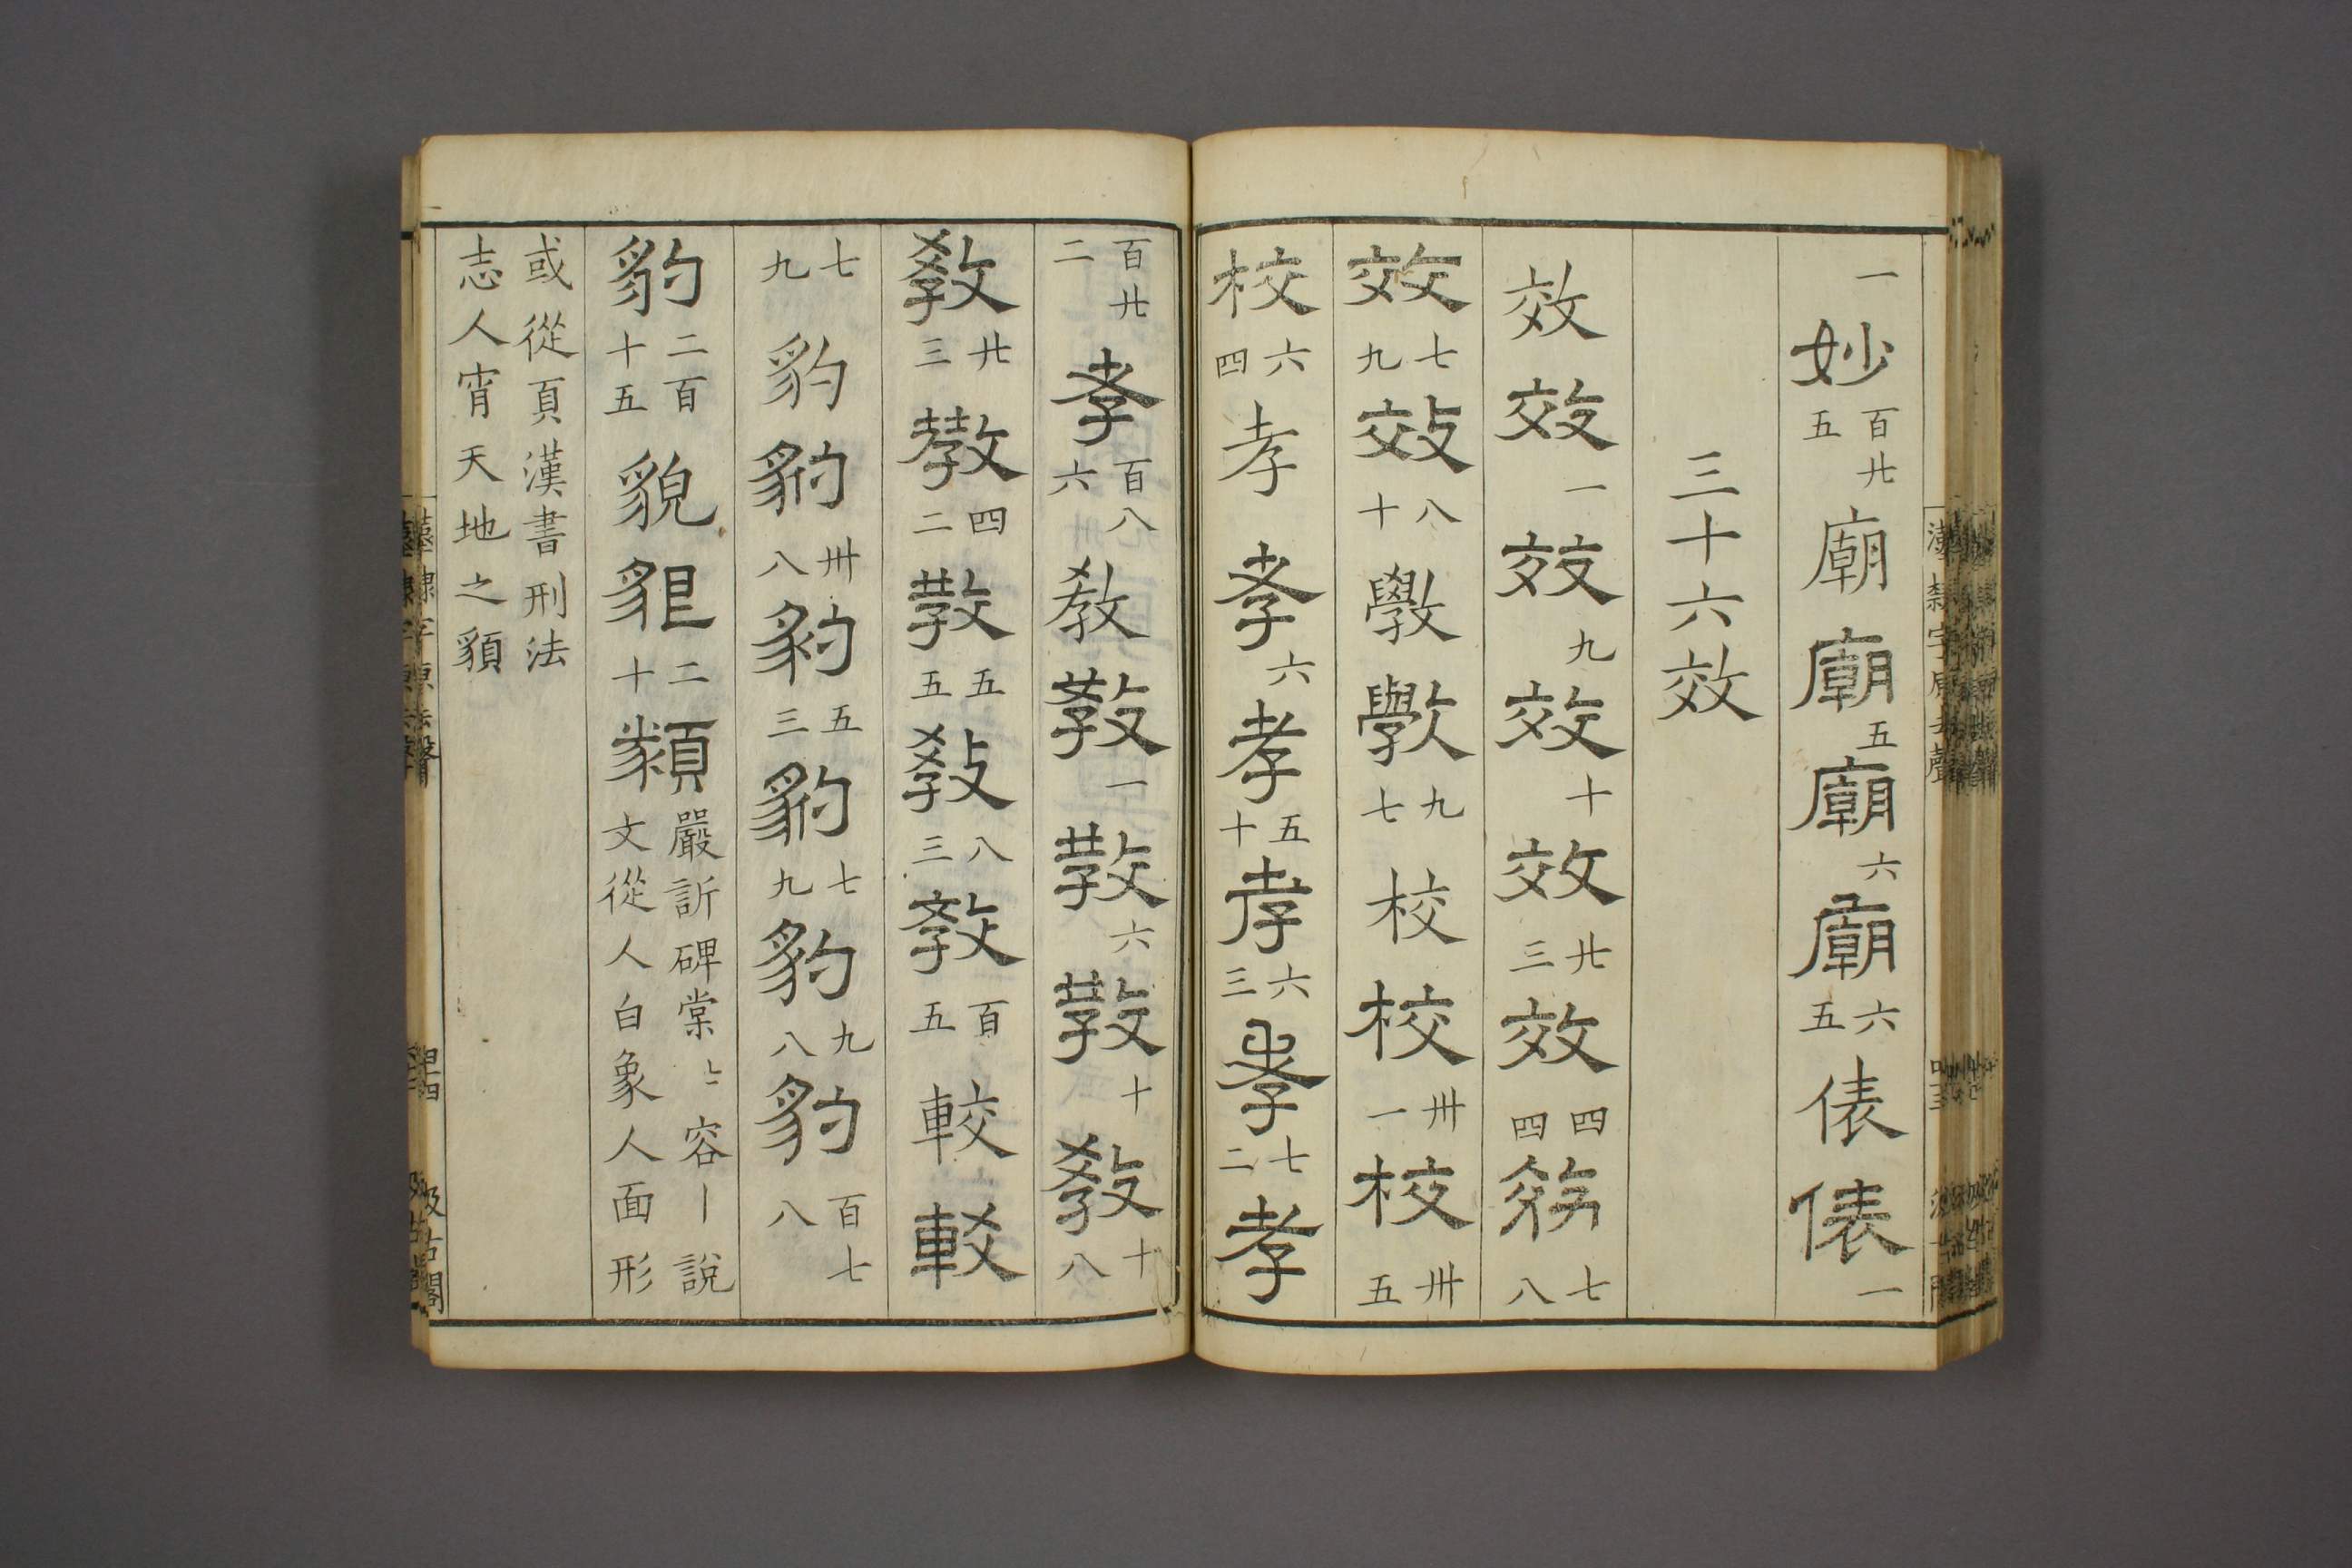 一妙百廿五廟廟五廟六廟六五俵俵一
三十六效
效效一效九效十效廿三效四四䇨七八
效七九效八十斆斆九七校校卅一校卅五
校六四孝孝六孝五十孝六三孝七二孝
百廿二孝百八六教教一教六教十教十八
教廿三教四二教五五教八三教百五較較
七九豹豹卅八豹五三豹七九豹九八豹百七八
豹二百十五貌貌二十䫉嚴訢碑棠〻容丨說
文從人白象人面形
或從頁漢書刑法
志人宵天地之䫉
漢隸字原去聲
汲古閣